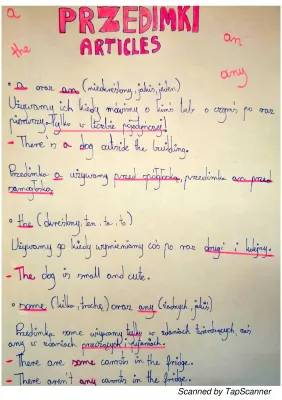 a
PRZEDIMKI
ARTICLES
the
an
any
• a oraz an (nieokreślony, jakiś, jeden)
Używamy ich kiedy mówimy o kimś lub o czymś po raz
pierwszy. Tylko w liczbie pojedynczej!
- There's a dog outside the building.
Przedimka a używamy przed spółgłoską, przedimka an przed
samogłoską.
• the (określony, ten, ta, to)
Używamy go kiedy wymieniamy coś po raz drugi i kolejny.
- The dog is small and cute.
• some (kilka, trochę) oraz any (żadnych, jakiś)
Przedimka some używamy tylko w zdaniach twierdzących, zaś
any w zdaniach przeczących i pytaniach.
- There are some carrots in the fridge.
- There aren't any carrots in the fridge.
Scanned by TapScanner